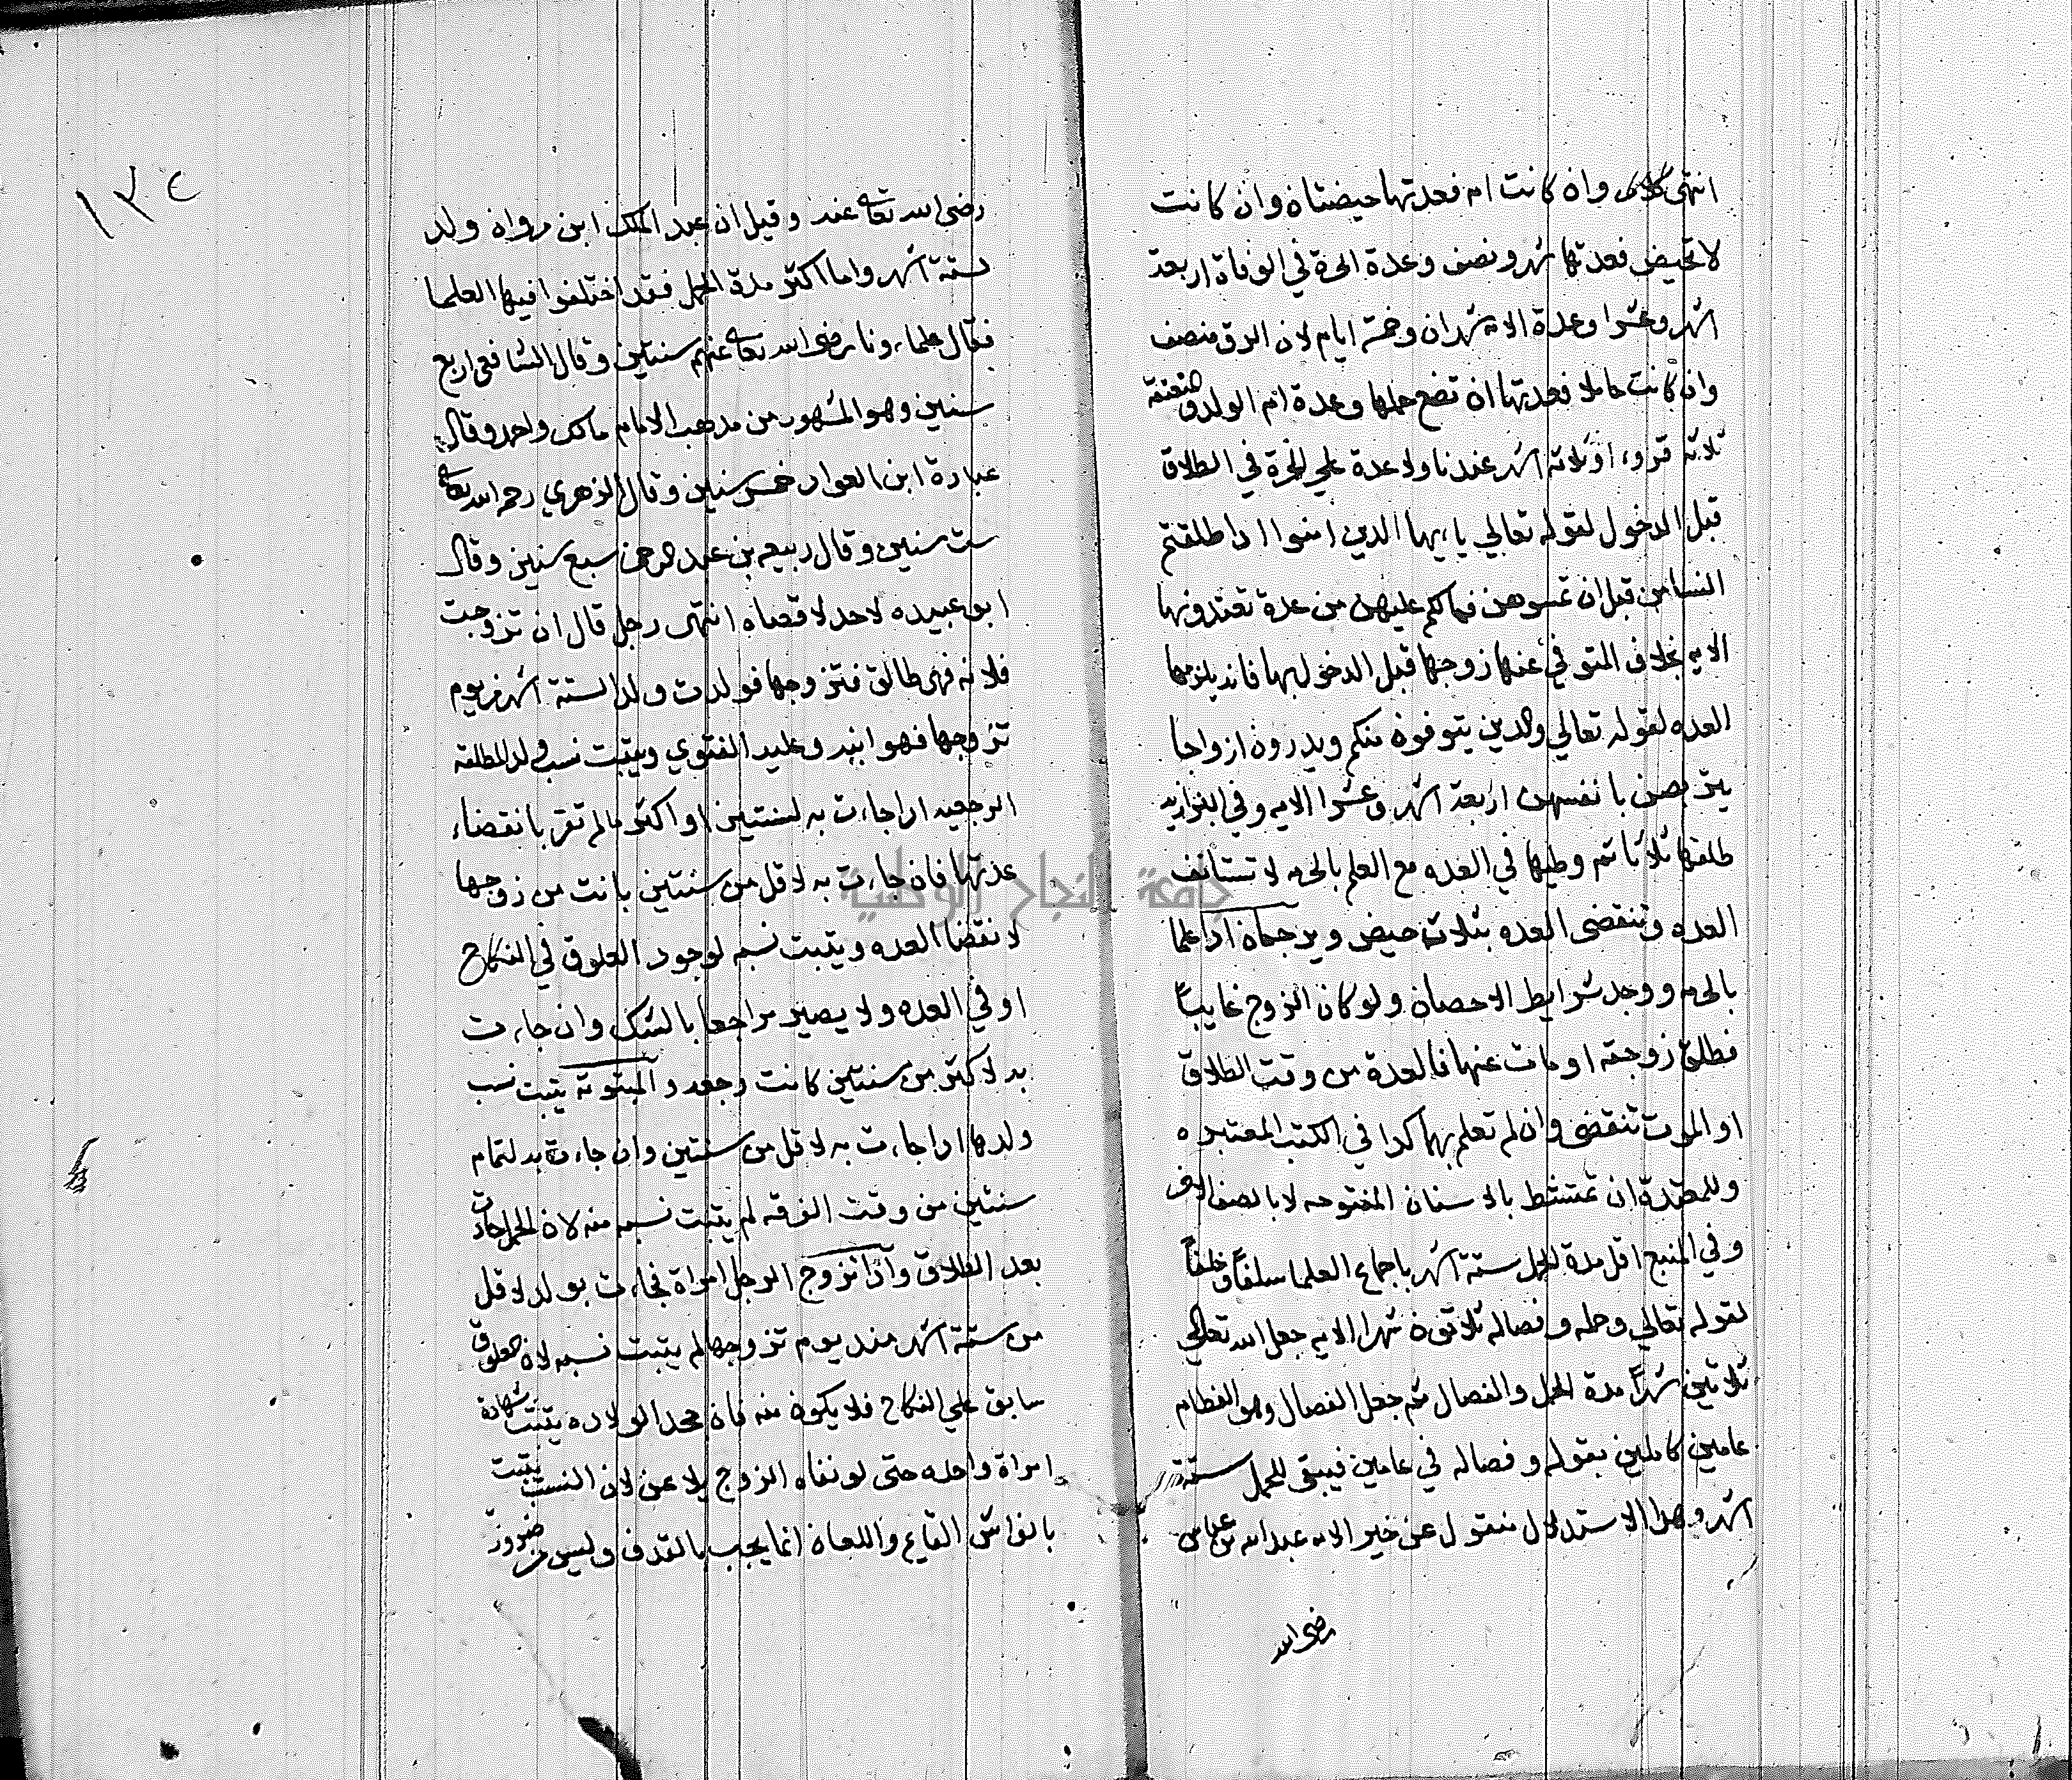 انتهى كلامه وان كانت امه فعدتها حيضتان وان كانت
لا تحيض فعدتها شهر ونصف وعدة الحرة في الوفاة اربعة
اشهر وعشرا وعدة الامة شهران وخمسة ايام لان الرق منصف
وان كانت حاملا فعدتها ان تضع حملها وعدة ام الولد
ثلاثة قروء او ثلاثة اشهر عندنا ولا عدة علي الحرة في الطلاق
قبل الدخول لقوله تعالي يا ايها الدين امنوا ادا طلقتم
النسا من قبل ان تمسوهن فما لكم عليهن من عدة تعتدونها
الايه بخلاف المتوفي عنها زوجها قبل الدخول بها فانه يلزمها
العده لقوله تعالي والدين يتوفون منكم ويدرون ازواجا
يتربصن بانفسهن اربعة اشهر وعشرا الايه وفي البزازيه
طلقها ثلاثا ثم وطيها في العده مع العلم بالحرمه لا تستانف
العده وتنقضى العده بثلاث حيض ويرجمان ادا علما
بالحرمه ووجد شرايط الاحصان ولو كان الزوج غايباً
فطلق زوجته او مات عنها فالعدة من وقت الطلاق
او الموت تنقضى وان لم تعلم بهما كدا في الكتب المعتبره
وللمعتدة ان تمتشط بالاسنان المفتوحه لا بالصف الاخر
وفي المنبع اقل مدة الحمل ستة اشهر باجماع العلما سلفاً وخلفاً
لقوله تعالي وحمله وفصاله ثلاثون شهرا الايه جعل الله تعالي
ثلاثين شهراً مدة الحمل والفصال ثم جعل الفصال وهو الفطام
عامين كاملين بقوله وفصاله في عامين فيبقى للحمل ستة
اشهر وهدا الاستدلال منقول عن خير الامه عبد الله بن عباس
رضى الله
١٣٤
رضى الله تعالى عنه وقيل ان عبد الملك ابن مروان ولد
لستة اشهر واما اكثر مدة الحمل فقد اختلفوا فيها العلما
فقال علماءونا رضى الله تعالى عنهم سنتين وقال الشافعى اربع
سنين وهو المشهور من مدهب الامام مالك واحمد وقال
عبادة ابن العوام خمس سنين وقال الزهري رحمه الله تعالى
ست سنين وقال ربيعه بن عبد الرحمن سبع سنين وقال
ابو عبيده لا حد لاقصاه انتهى رجل قال ان تزوجت
فلانه فهى طالق فتزوجها فولدت ولدا لستة اشهر من يوم
تزوجها فهو ابنه وعليه الفتوي ويثبت نسب ولد المطلقه
الرجعيه ادا جاءت به لسنتين او اكثر ما لم تقر بانقضاء
عدتها فان جاءت به لاقل من سنتين بانت من زوجها
لانقضا العده ويثبت نسبه لوجود العلوق في النكاح
او في العده ولا يصير مراجعا بالشك وان جاءت
به لاكثر من سنتين كانت رجعه والمبتوته يثبت نسب
ولدها ادا جاءت به لاقل من سنتين وان جاءت به لتمام
سنتين من وقت الفرقه لم يثبت نسبه منه لان الحمل حادث
بعد الطلاق وادا تزوج الرجل امراة فجاءت بولد لاقل
من ستة اشهر مند يوم تزوجها لم يثبت نسبه لان العلوق
سابق علي النكاح فلا يكون منه فان جحد الولاده يثبت بشهادة
امراة واحده حتى لو نفاه الزوج يلاعن لان النسب يثبت
بالفراش القايم واللعان انما يجب بالقدف وليس من ضرورة
جامعة النجاح الوطنية